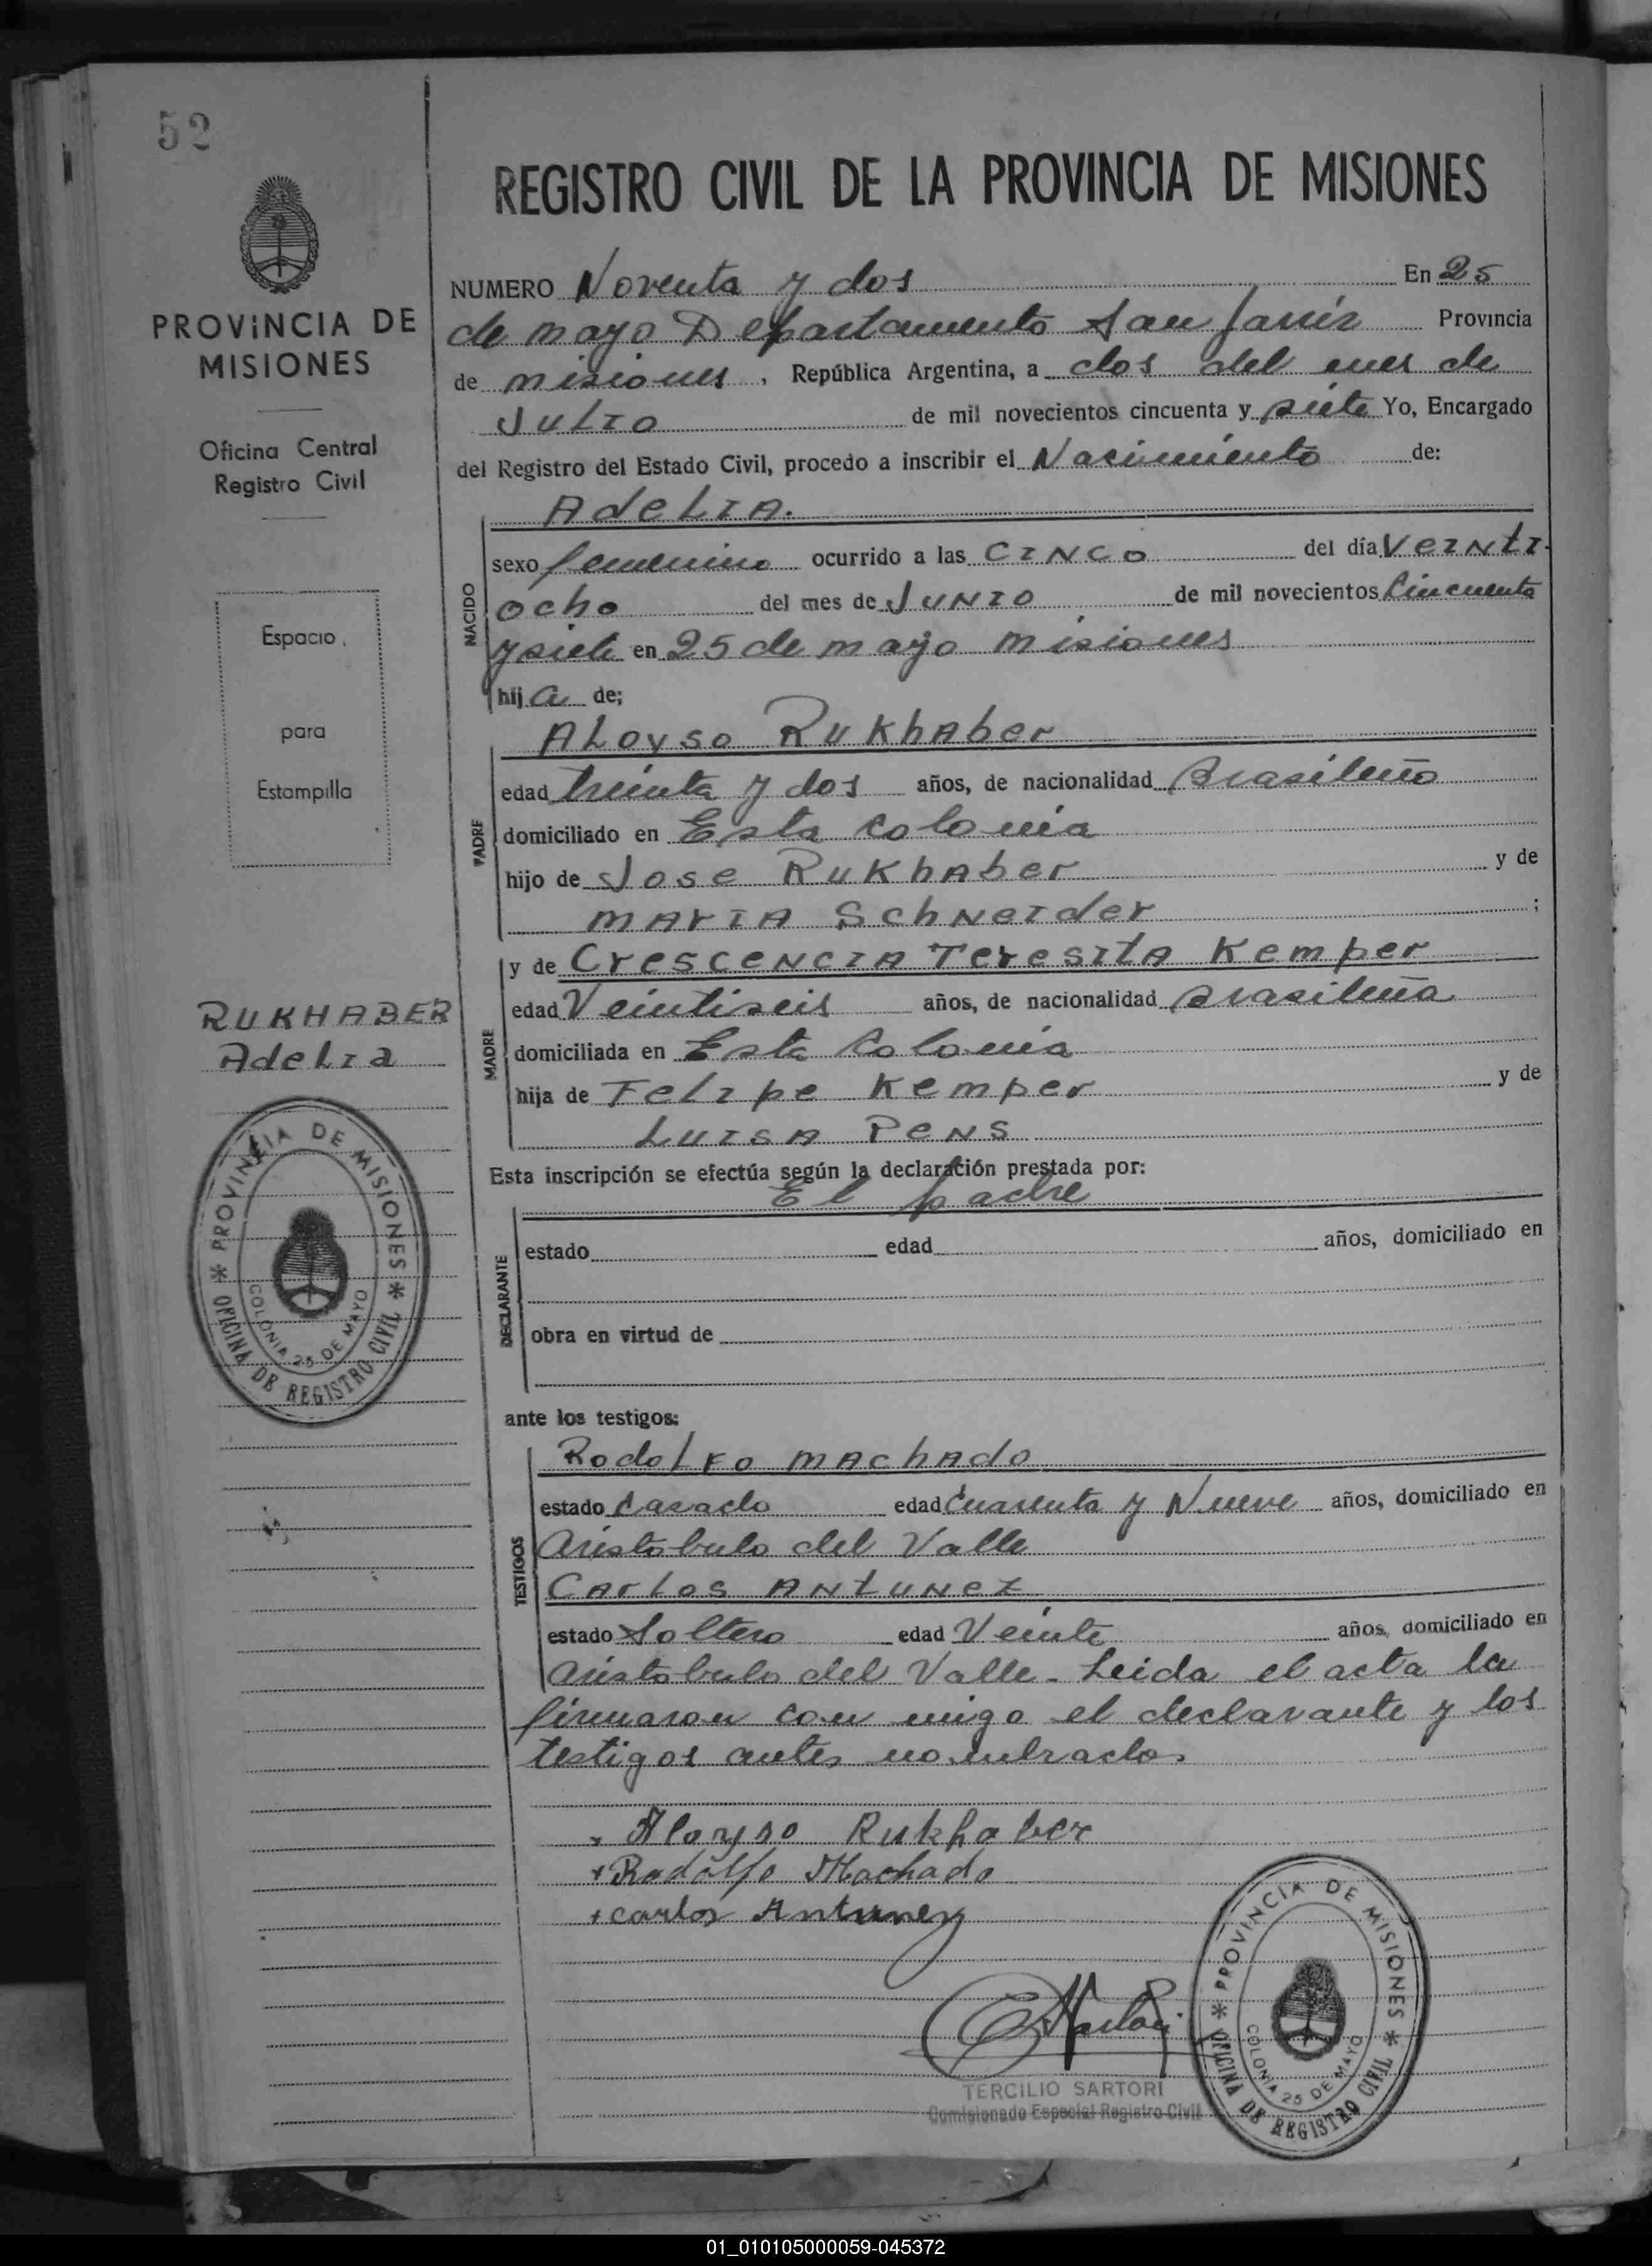 52
PROVINCIA DE
MISIONES
Oficina Central
Registro Civil
Espacio
para
Estampilla
RUKHABER
Adelia
PROVINCIA DE MISIONES
OFICINA DE REGISTRO CIVIL
COLONIA 25 DE MAYO
REGISTRO CIVIL DE LA PROVINCIA DE MISIONES
NUMERO Noventa y dos En 25
de mayo Departamento San Javier Provincia
de misiones, República Argentina, a dos del mes de
Julio de mil novecientos cincuenta y siete Yo, Encargado
del Registro del Estado Civil, procedo a inscribir el Nacimiento de:
Adelia.
NACIDO
sexo femenino ocurrido a las CINCO del día Veinti-
ocho del mes de JUNIO de mil novecientos Cincuenta
y siete en 25 de mayo misiones
hija de;
PADRE
Aloyso Rukhaber
edad treinta y dos años, de nacionalidad Brasileño
domiciliado en Esta Colonia
hijo de Jose Rukhaber y de
maria Schneider ;
MADRE
y de Crescencia Teresita Kemper
edad Veintiseis años, de nacionalidad Brasileña
domiciliada en Esta Colonia
hija de Felipe Kemper y de
Luisa Pens
Esta inscripción se efectúa según la declaración prestada por:
El padre
DECLARANTE
estado edad años, domiciliado en
obra en virtud de
ante los testigos:
TESTIGOS
Rodolfo machado
estado Casado edad Cuarenta y Nueve años, domiciliado en
Aristobulo del Valle
Carlos Antunez
estado Soltero edad Veinte años, domiciliado en
Aristobulo del Valle - Leida el acta la
firmaron con migo el declarante y los
testigos antes nombrados
Aloyso Rukhaber
+ Rodolfo Machado
+ carlos Antunez
TERCILIO SARTORI
Comisionado Especial Registro Civil
PROVINCIA DE MISIONES
OFICINA DE REGISTRO CIVIL
COLONIA 25 DE MAYO
01_010105000059-045372